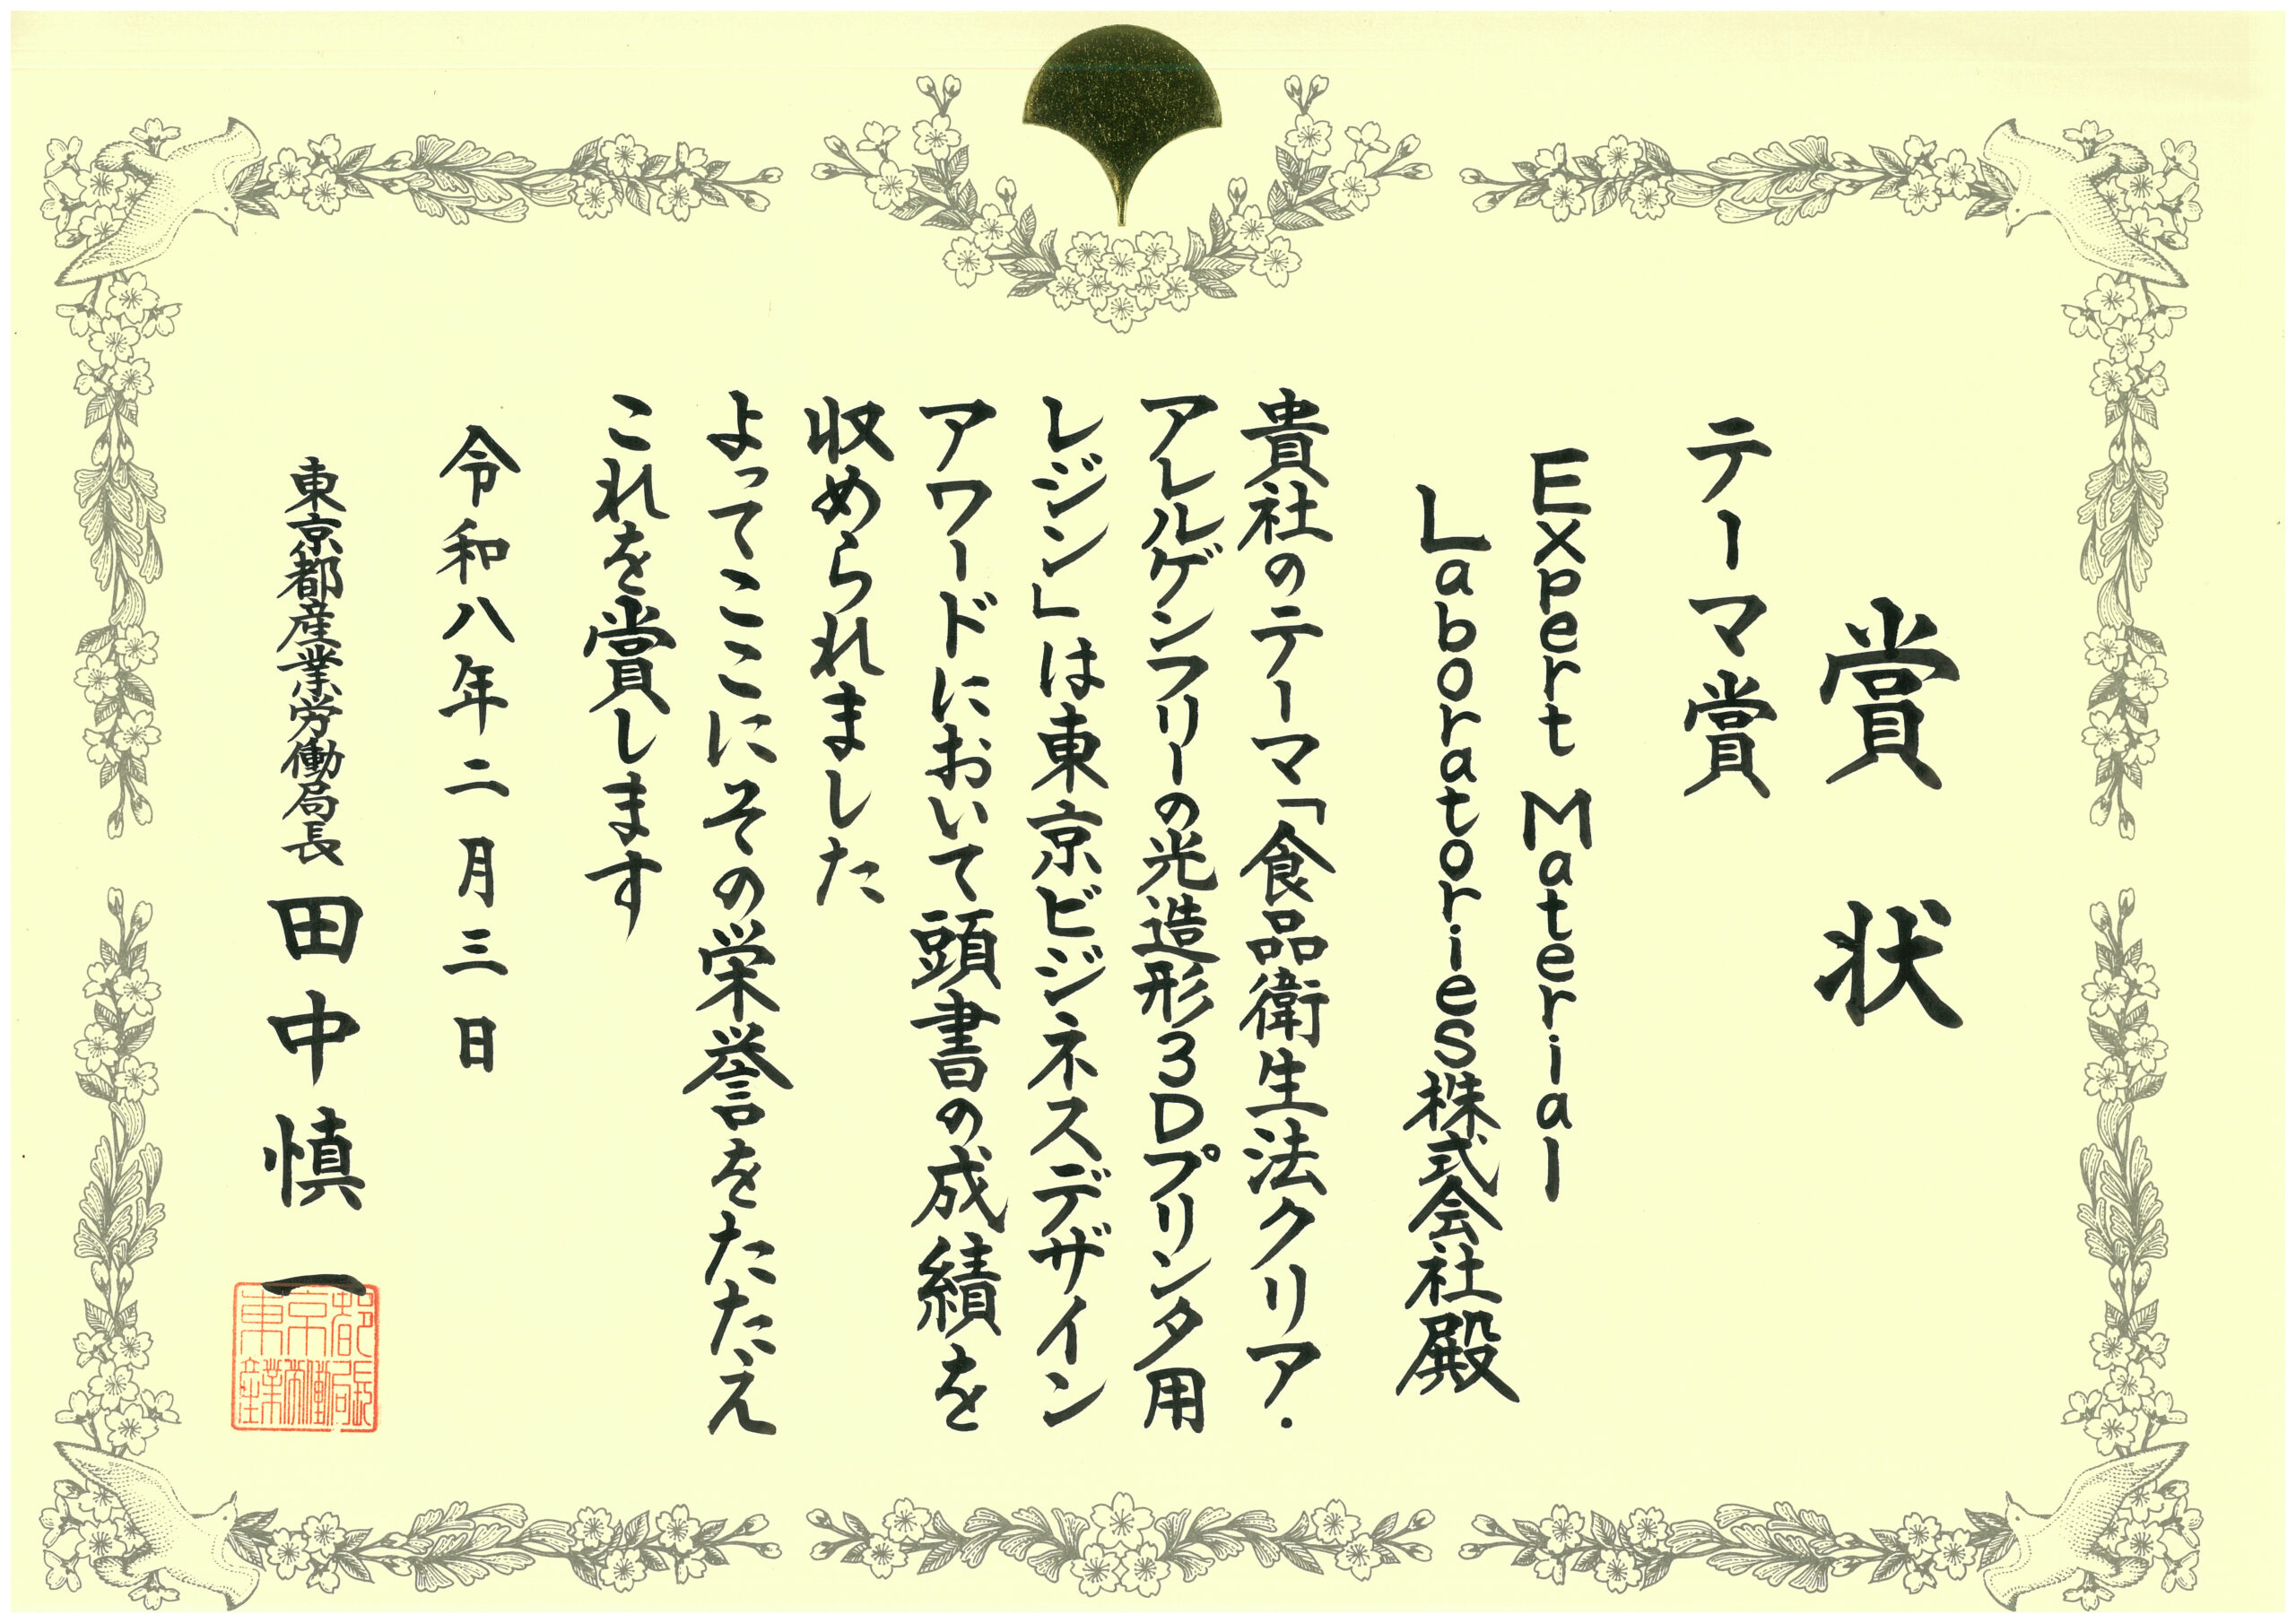 賞状
テーマ賞
Expert Material
Laboratories株式会社殿
貴社のテーマ「食品衛生法クリア・
アレルゲンフリーの光造形3Dプリンタ用
レジン」は東京ビジネスデザイン
アワードにおいて頭書の成績を
収められました
よってここにその栄誉をたたえ
これを賞します
令和八年二月三日
東京都産業労働局長 田中慎一
東京都
産業労働局長